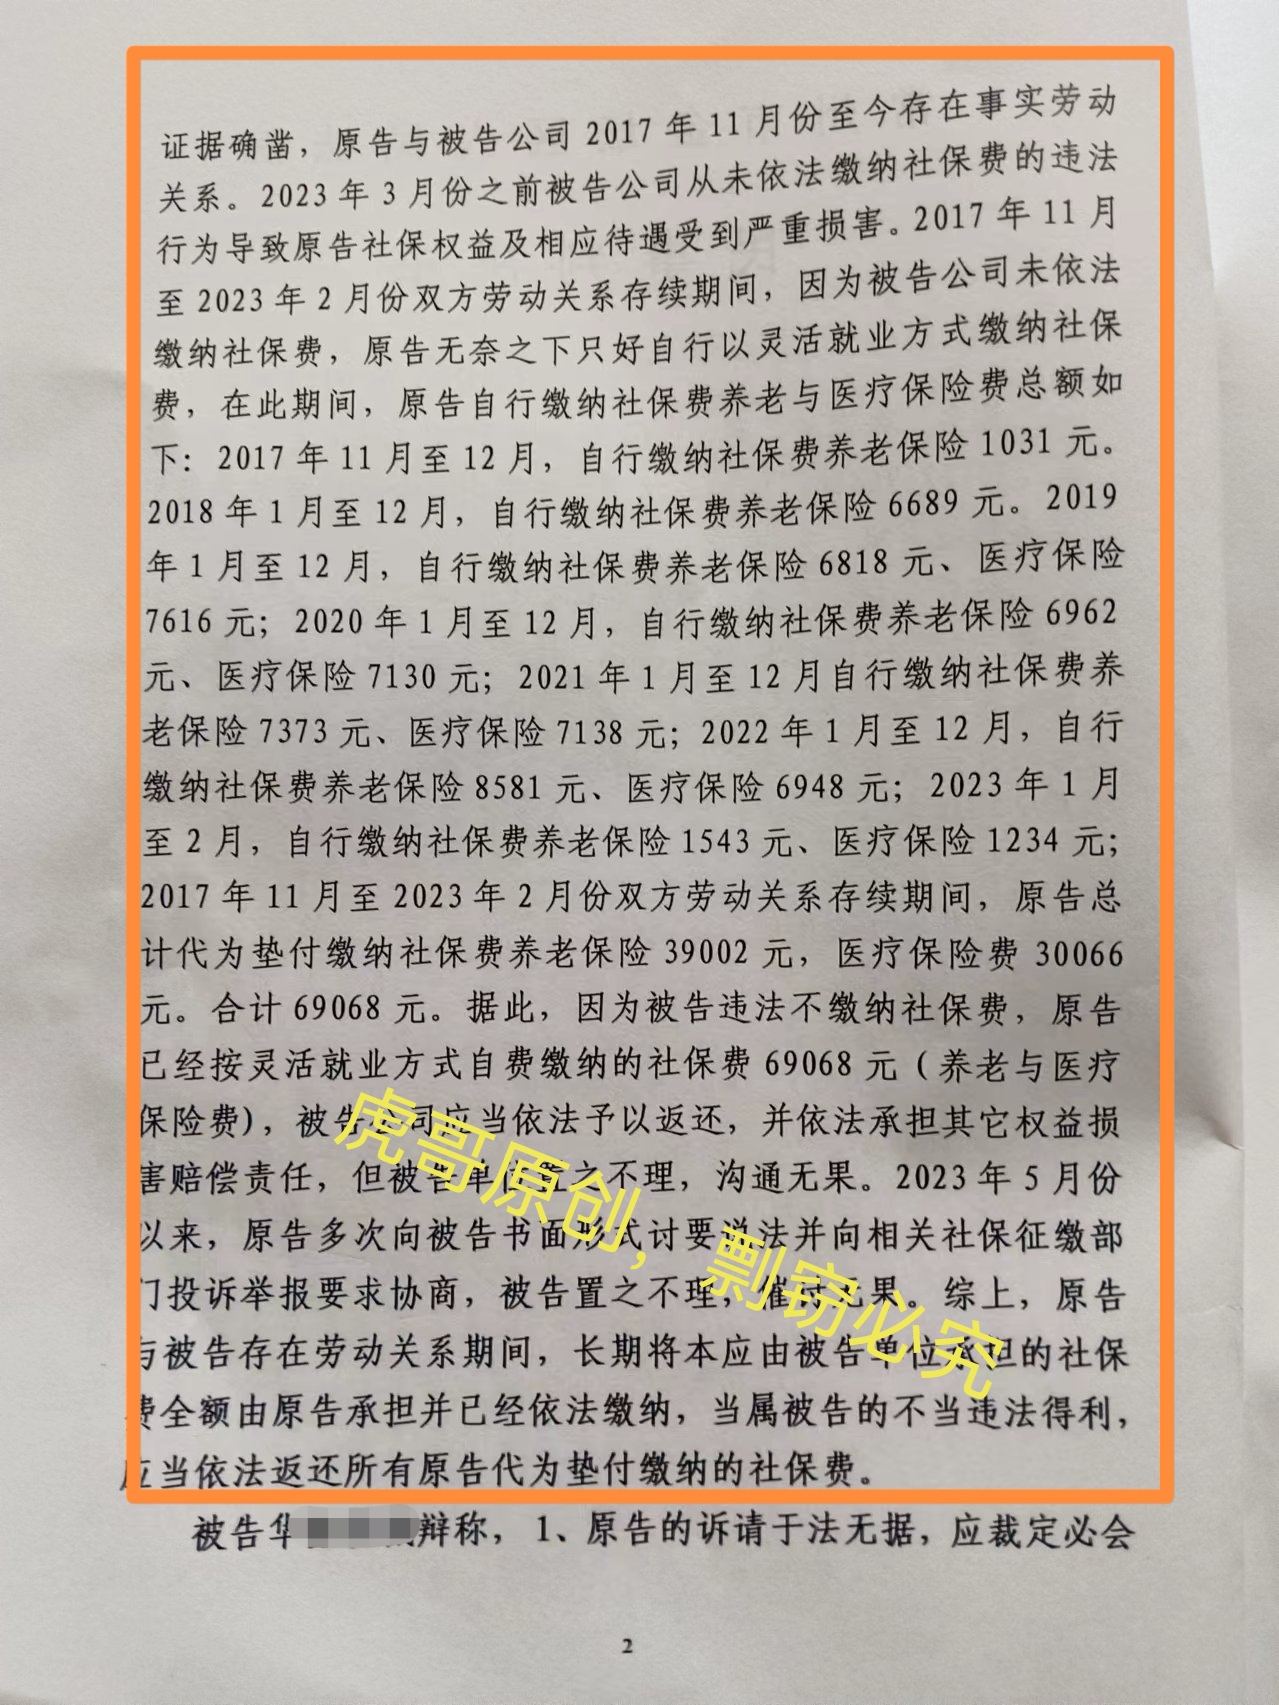 证据确凿，原告与被告公司 2017 年 11 月份至今存在事实劳动
关系。2023 年 3 月份之前被告公司从未依法缴纳社保费的违法
行为导致原告社保权益及相应待遇受到严重损害。2017 年 11 月
至 2023 年 2 月份双方劳动关系存续期间，因为被告公司未依法
缴纳社保费，原告无奈之下只好自行以灵活就业方式缴纳社保
费，在此期间，原告自行缴纳社保费养老与医疗保险费总额如
下：2017 年 11 月至 12 月，自行缴纳社保费养老保险 1031 元。
2018 年 1 月至 12 月，自行缴纳社保费养老保险 6689 元。2019
年 1 月至 12 月，自行缴纳社保费养老保险 6818 元、医疗保险
7616 元；2020 年 1 月至 12 月，自行缴纳社保费养老保险 6962
元、医疗保险 7130 元；2021 年 1 月至 12 月自行缴纳社保费养
老保险 7373 元、医疗保险 7138 元；2022 年 1 月至 12 月，自行
缴纳社保费养老保险 8581 元、医疗保险 6948 元；2023 年 1 月
至 2 月，自行缴纳社保费养老保险 1543 元、医疗保险 1234 元；
2017 年 11 月至 2023 年 2 月份双方劳动关系存续期间，原告总
计代为垫付缴纳社保费养老保险 39002 元，医疗保险费 30066
元。合计 69068 元。据此，因为被告违法不缴纳社保费，原告
已经按灵活就业方式自费缴纳的社保费 69068 元（养老与医疗
保险费)，被告公司应当依法予以返还，并依法承担其它权益损
害赔偿责任，但被告单位置之不理，沟通无果。2023 年 5 月份
以来，原告多次向被告书面形式讨要说法并向相关社保征缴部
门投诉举报要求协商，被告置之不理，催讨无果。综上，原告
与被告存在劳动关系期间，长期将本应由被告单位承担的社保
费全额由原告承担并已经依法缴纳，当属被告的不当违法得利，
应当依法返还所有原告代为垫付缴纳的社保费。
虎哥原创，剽窃必究
被告华 辩称，1、原告的诉请于法无据，应裁定必会
2